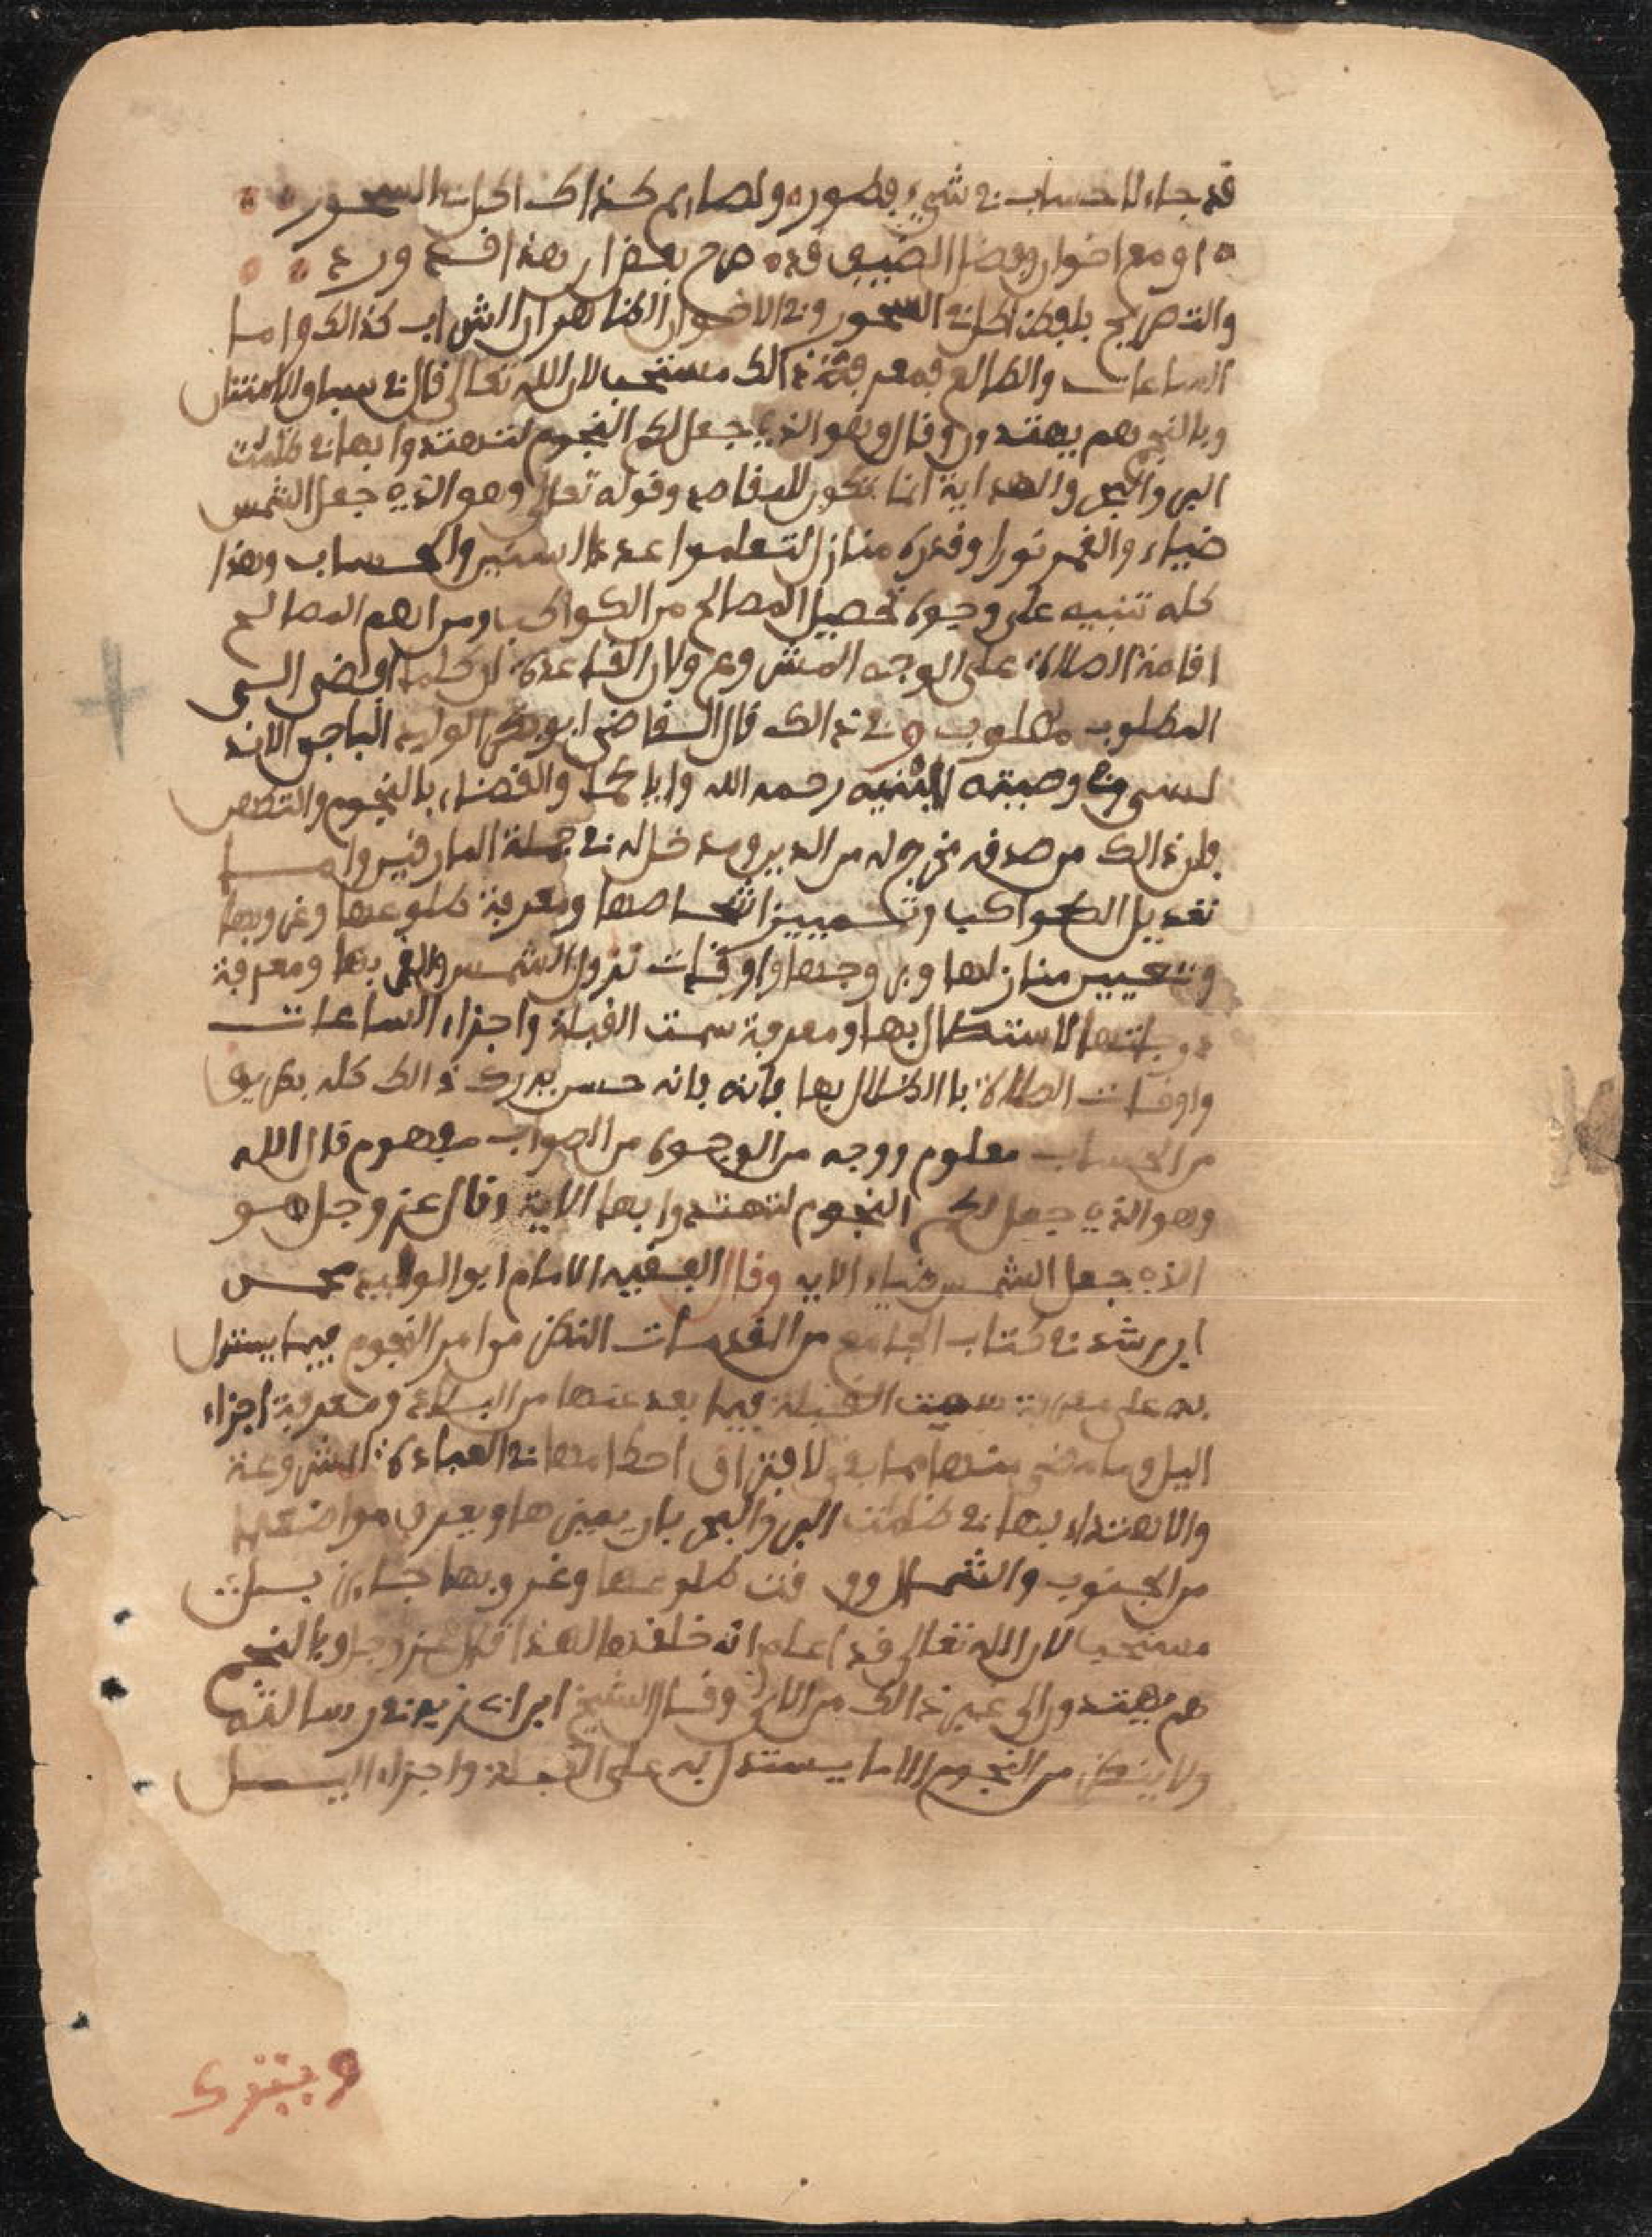 قد جاء لا حساب في شيء فطوره ولصايم كذاك اكلة السحور
او مع اخوان وفضل الضيف قد صرح بعض ان هذا قد ورد
والتصريح بلفظ اكلة السحور وفي الاخوان الظاهر ان الشراب كذالك واما
الساعات والطالع فمعرفة ذالك مستحب لان الله تعالى قال في سياق الامتنان
وبالنجم هم يهتدون وقال وهو الذي جعل لكم النجوم لتهتدوا بها في ظلمت
البر والبحر والهداية انما تكون للمقاصد وقوله تعالى وهو الذي جعل الشمس
ضياء والقمر نورا وقدره منازل لتعلموا عدد السنين والحساب وهذا
كله تنبيه على وجوه تحصيل المصالح من الكواكب ومن اهم المصالح
اقامة الصلاة على الوجه المشروع ولان القاعدة ان كلما افضى الى
المطلوب مطلوب وفي ذالك قال القاضي ابو الوليد الباجي الاند
لسي في وصيته لابنيه رحمه الله واياكما والقضاء بالنجوم والتخرص
فان ذالك من صدقه مخرج له من الدين ومدخل له في جملة المارقين واما
تعديل الكواكب وتمييز اشخاصها ومعرفة طلوعها وغروبها
وتعيين منازلها وبروجها واوقات نزول الشمس والقمر بها ومعرفة
درجاتها للاستدلال بها ومعرفة سمت القبلة واجزاء الساعات
واوقات الصلاة بالظلال بها فانه حسن يدرك ذالك كله بطريق
من الحساب معلوم ووجه من الوجوه من الصواب مفهوم قال الله
وهو الذي جعل لكم النجوم لتهتدوا بها الاية وقال عز وجل هو
الذي جعل الشمس ضياء الاية وقال الفقيه الامام ابو الوليد محمد
ابن رشد في كتاب الجامع من المقدمات النظر من امر النجوم فيما يستدل
به على معرفة سمت القبلة فيما بعد عنها من البلاد ومعرفة اجزاء
اليل وما مضى منها مما بقي لافتراق احكامها في العبادة المشروعة
والاهتداء بها في ظلمت البر والبحر بان يميزها ويعرف مواضعها
من الجنوب والشمال ووقت طلوعها وغروبها جايز بل
مستحب لان الله تعالى قد اعلم انه خلقها لهذا قال عز وجل وبالنجم
هم يهتدون الى غير ذالك من الاي وقال الشيخ ابن ابي زيد في رسالته
ولا ينظر من النجوم الا ما يستدل به على القبلة واجزاء اليل
ويترك